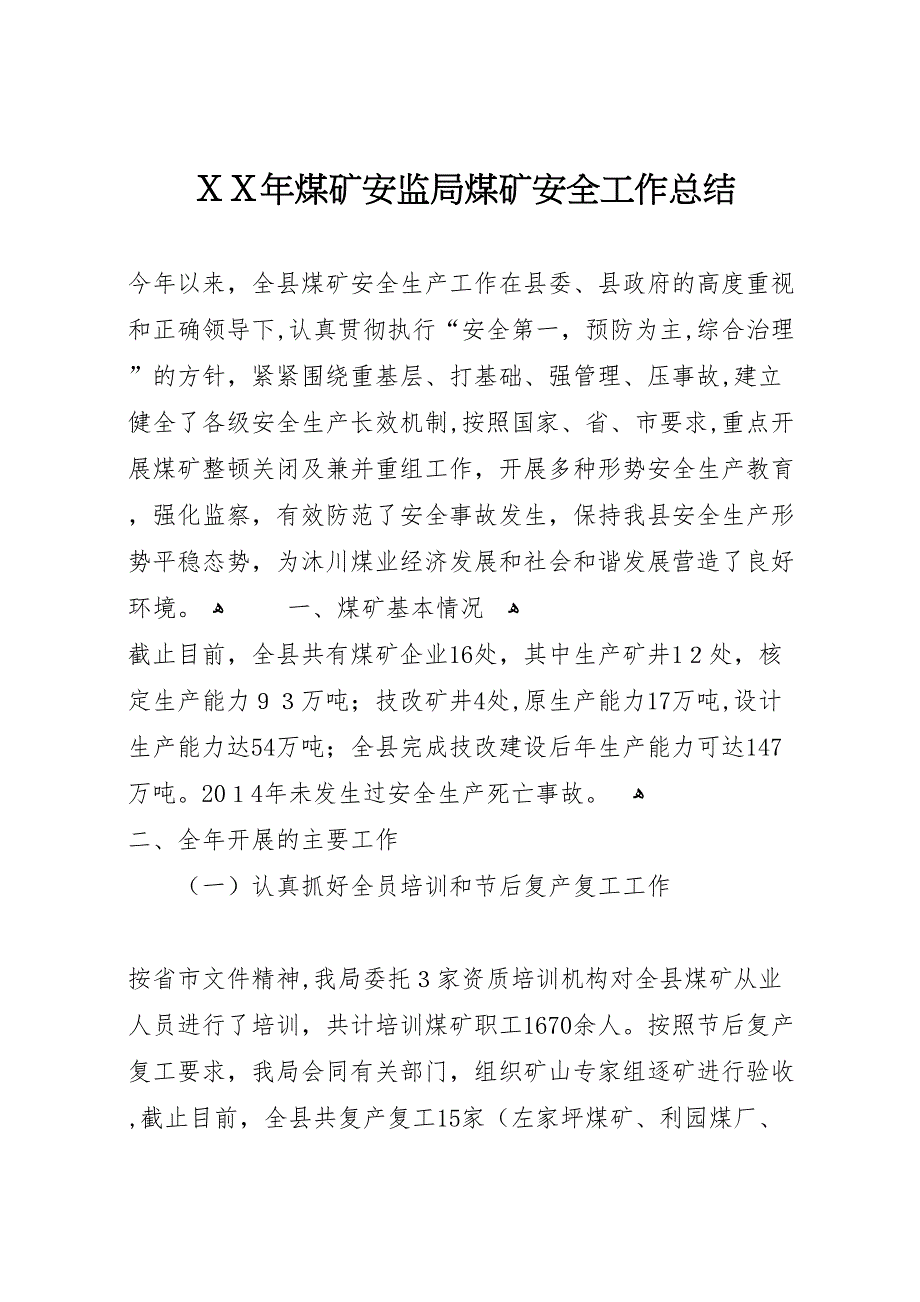 ＸＸ年煤矿安监局煤矿安全工作总结
今年以来，全县煤矿安全生产工作在县委、县政府的高度重视
和正确领导下,认真贯彻执行“安全第一，预防为主,综合治理
”的方针，紧紧围绕重基层、打基础、强管理、压事故,建立
健全了各级安全生产长效机制,按照国家、省、市要求,重点开
展煤矿整顿关闭及兼并重组工作，开展多种形势安全生产教育
，强化监察，有效防范了安全事故发生，保持我县安全生产形
势平稳态势，为沐川煤业经济发展和社会和谐发展营造了良好
环境。 ﻫ 一、煤矿基本情况 ﻫ
截止目前，全县共有煤矿企业16处，其中生产矿井1２处，核
定生产能力９３万吨；技改矿井4处,原生产能力17万吨,设计
生产能力达54万吨；全县完成技改建设后年生产能力可达147
万吨。20１4年未发生过安全生产死亡事故。 ﻫ
二、全年开展的主要工作
（一）认真抓好全员培训和节后复产复工工作
按省市文件精神,我局委托３家资质培训机构对全县煤矿从业
人员进行了培训，共计培训煤矿职工1670余人。按照节后复产
复工要求，我局会同有关部门，组织矿山专家组逐矿进行验收
,截止目前，全县共复产复工15家（左家坪煤矿、利园煤厂、